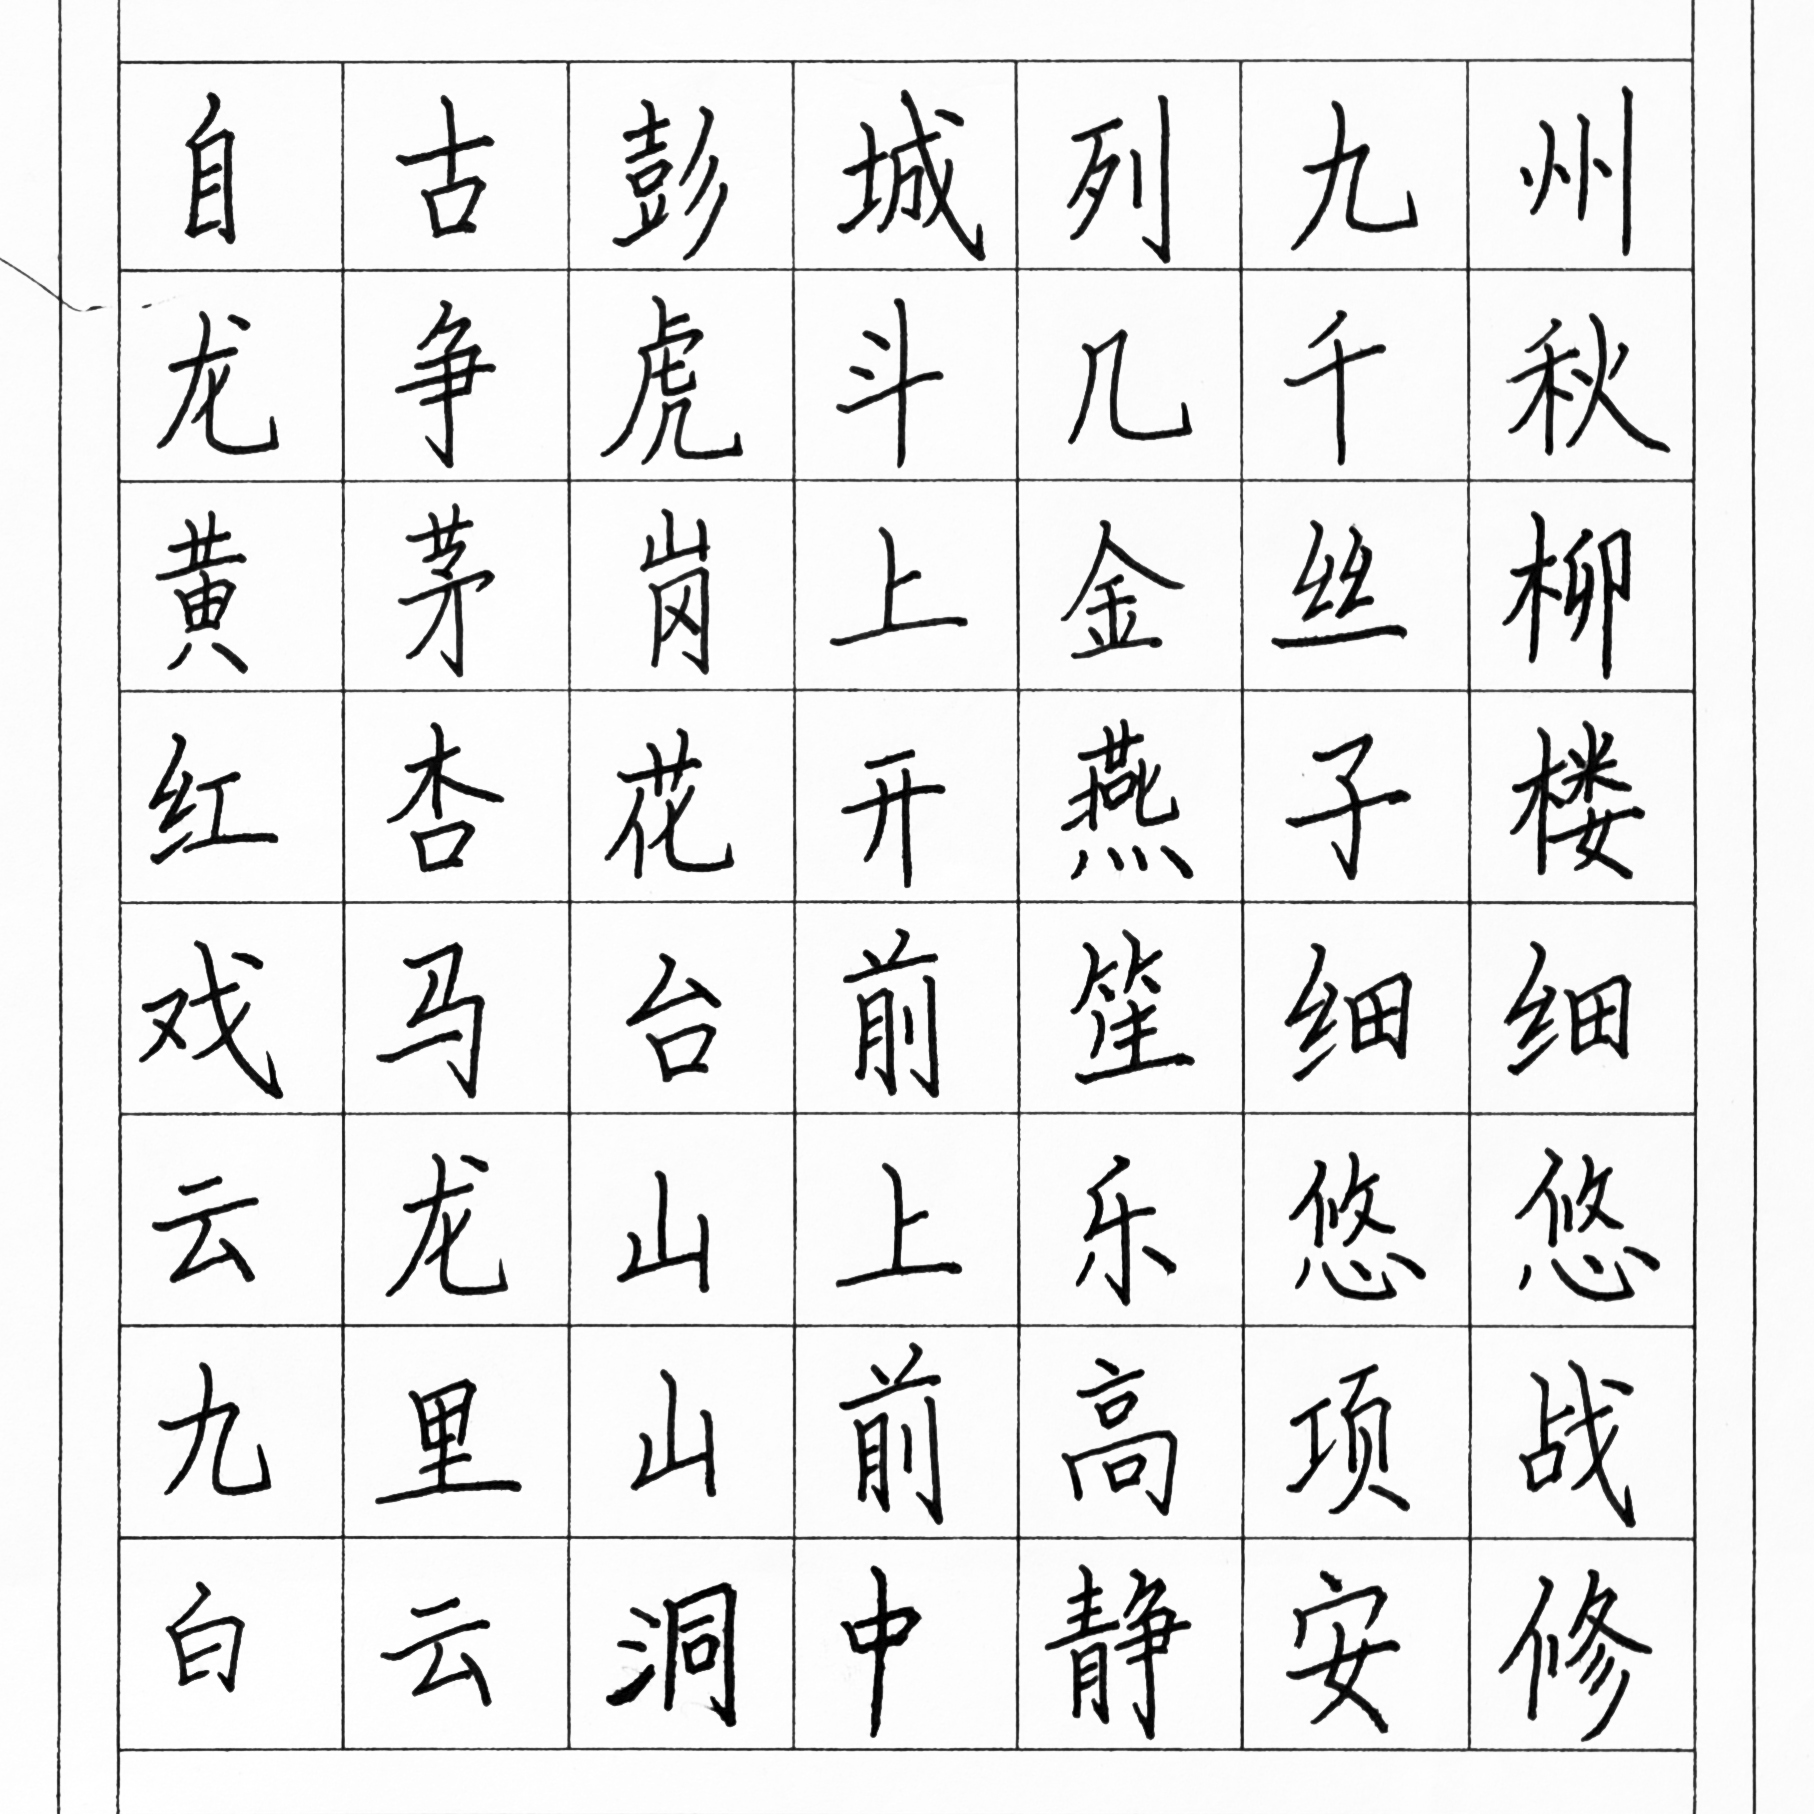 自古彭城列九州
龙争虎斗几千秋
黄茅岗上金丝柳
红杏花开燕子楼
戏马台前笙细细
云龙山上乐悠悠
九里山前高项战
白云洞中静安修